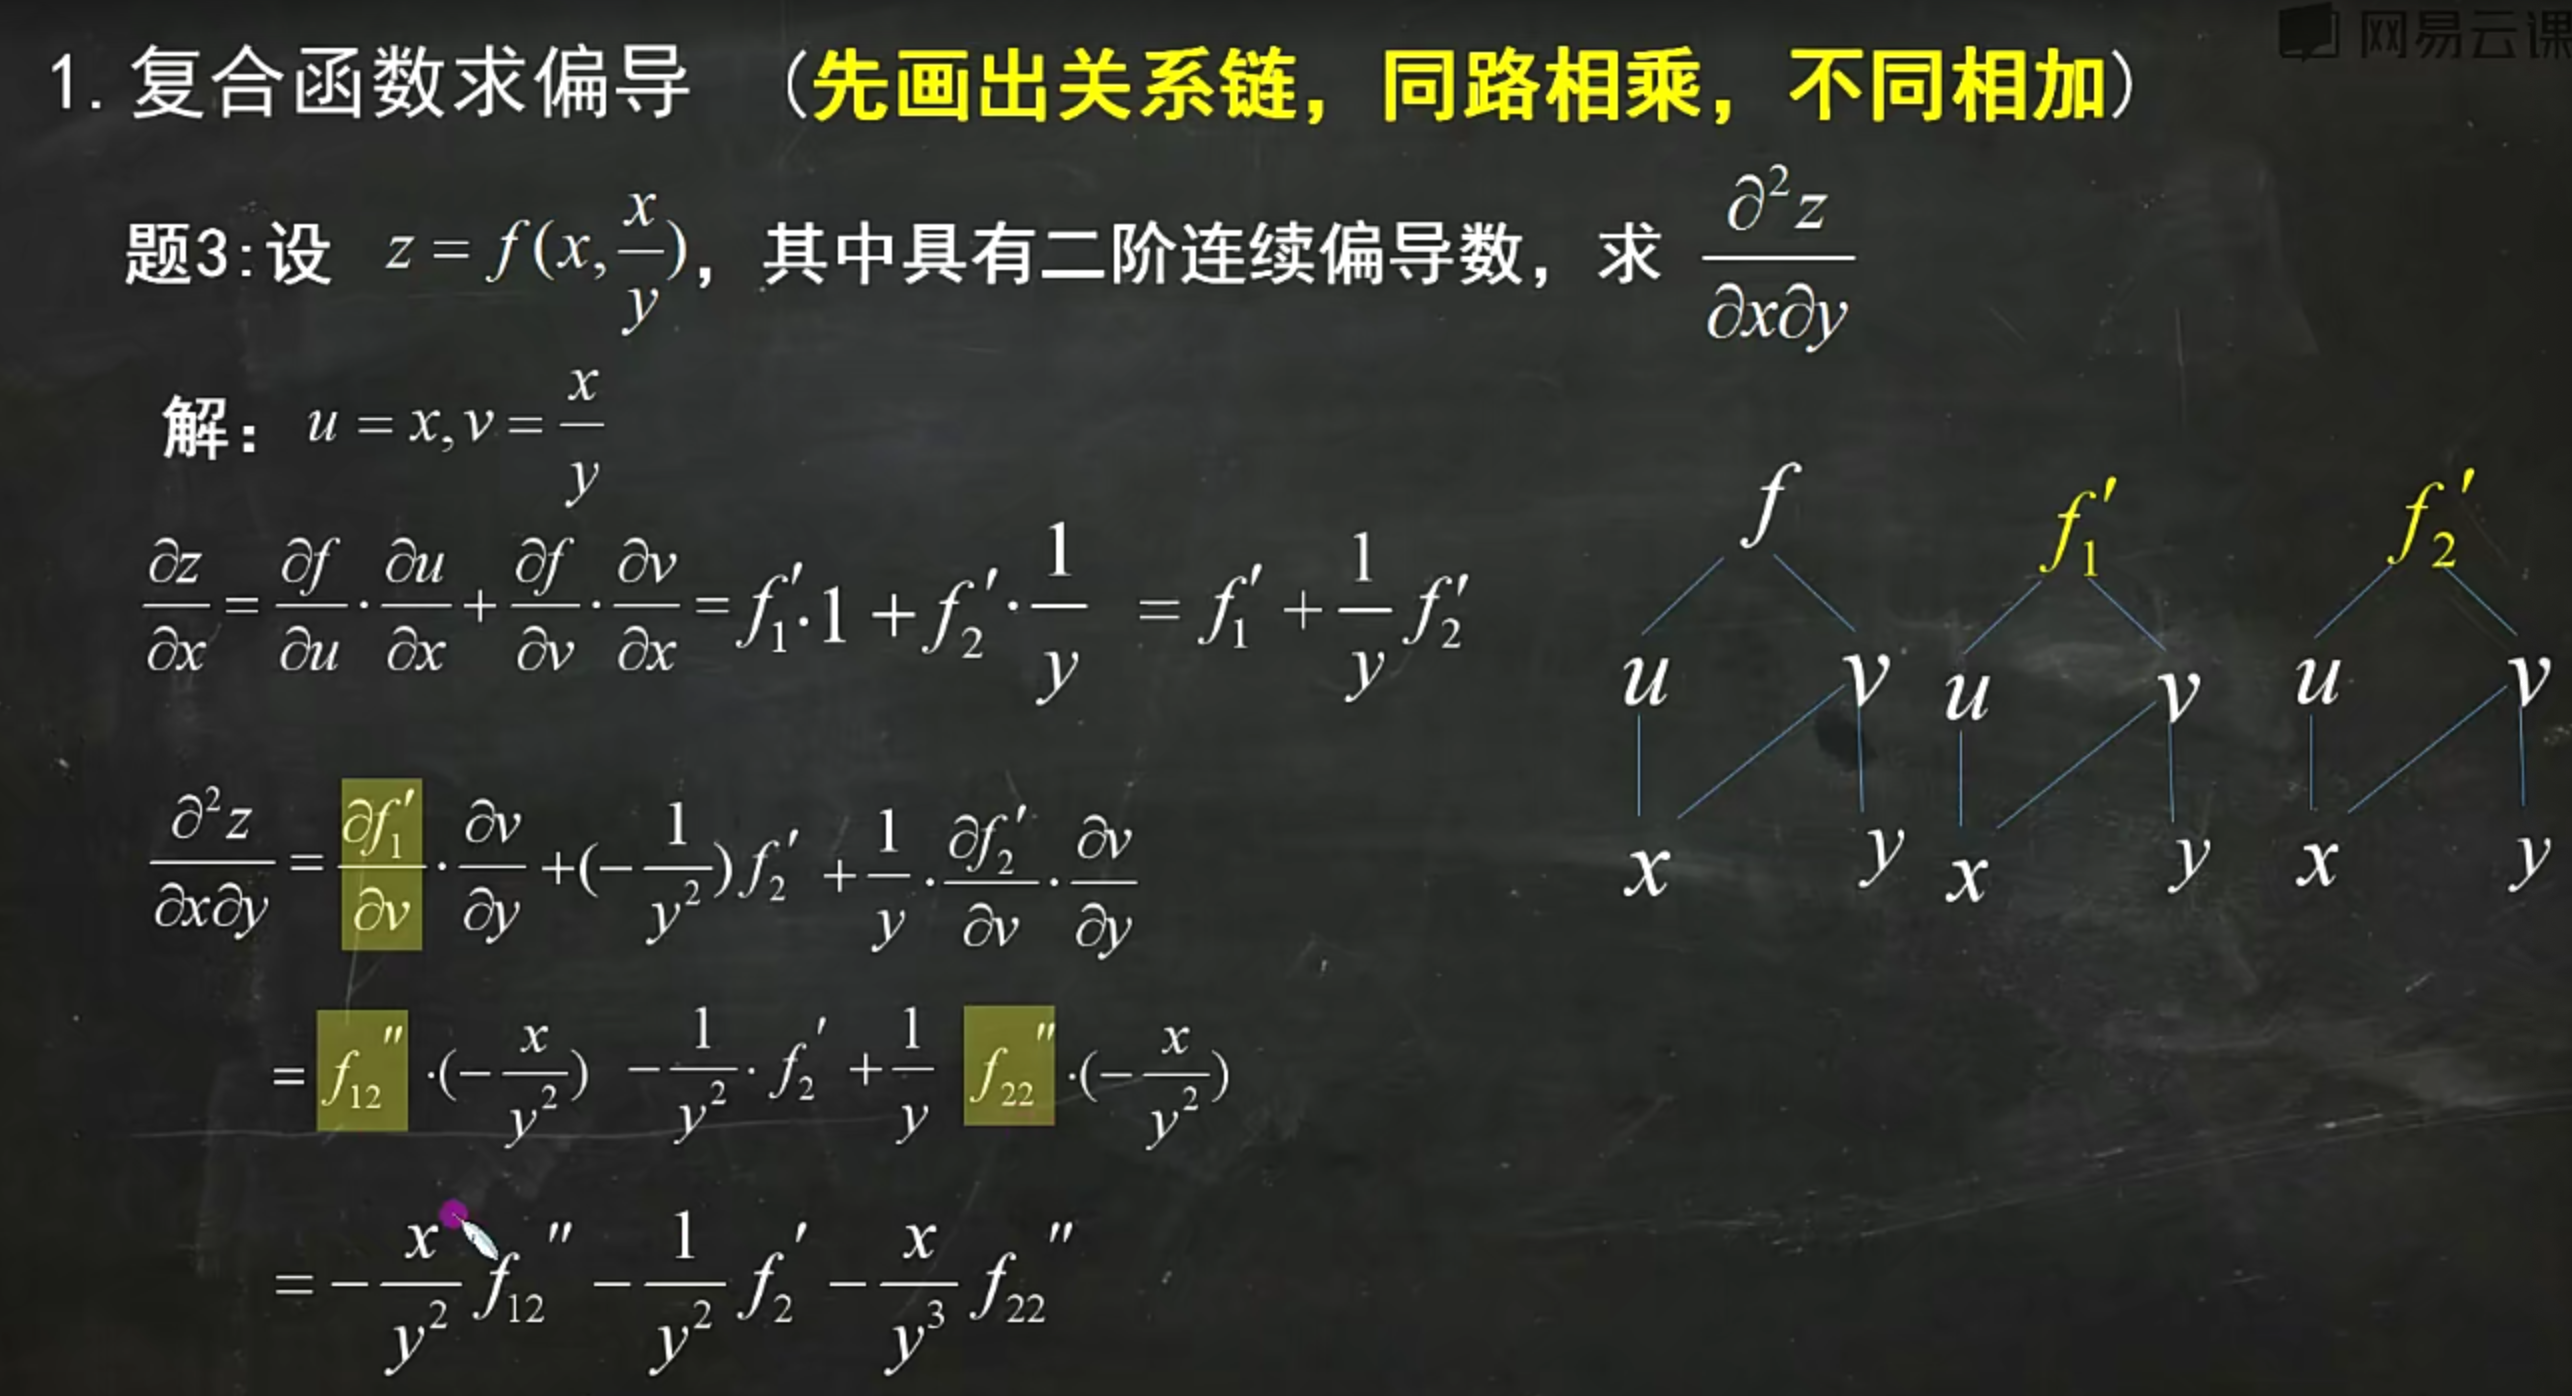 网易云课
1. 复合函数求偏导 (先画出关系链，同路相乘，不同相加)
题3:设 z = f(x, x/y)，其中具有二阶连续偏导数，求 ∂²z/∂x∂y
解： u = x, v = x/y
∂z/∂x = ∂f/∂u · ∂u/∂x + ∂f/∂v · ∂v/∂x = f₁′·1 + f₂′· 1/y = f₁′ + 1/y f₂′
∂²z/∂x∂y = ∂f₁′/∂v · ∂v/∂y + (− 1/y²) f₂′ + 1/y · ∂f₂′/∂v · ∂v/∂y
= f₁₂″ ·(− x/y²) − 1/y² · f₂′ + 1/y f₂₂″ ·(− x/y²)
= − x/y² f₁₂″ − 1/y² f₂′ − x/y³ f₂₂″
f f₁′ f₂′
u v u v u v
x y x y x y